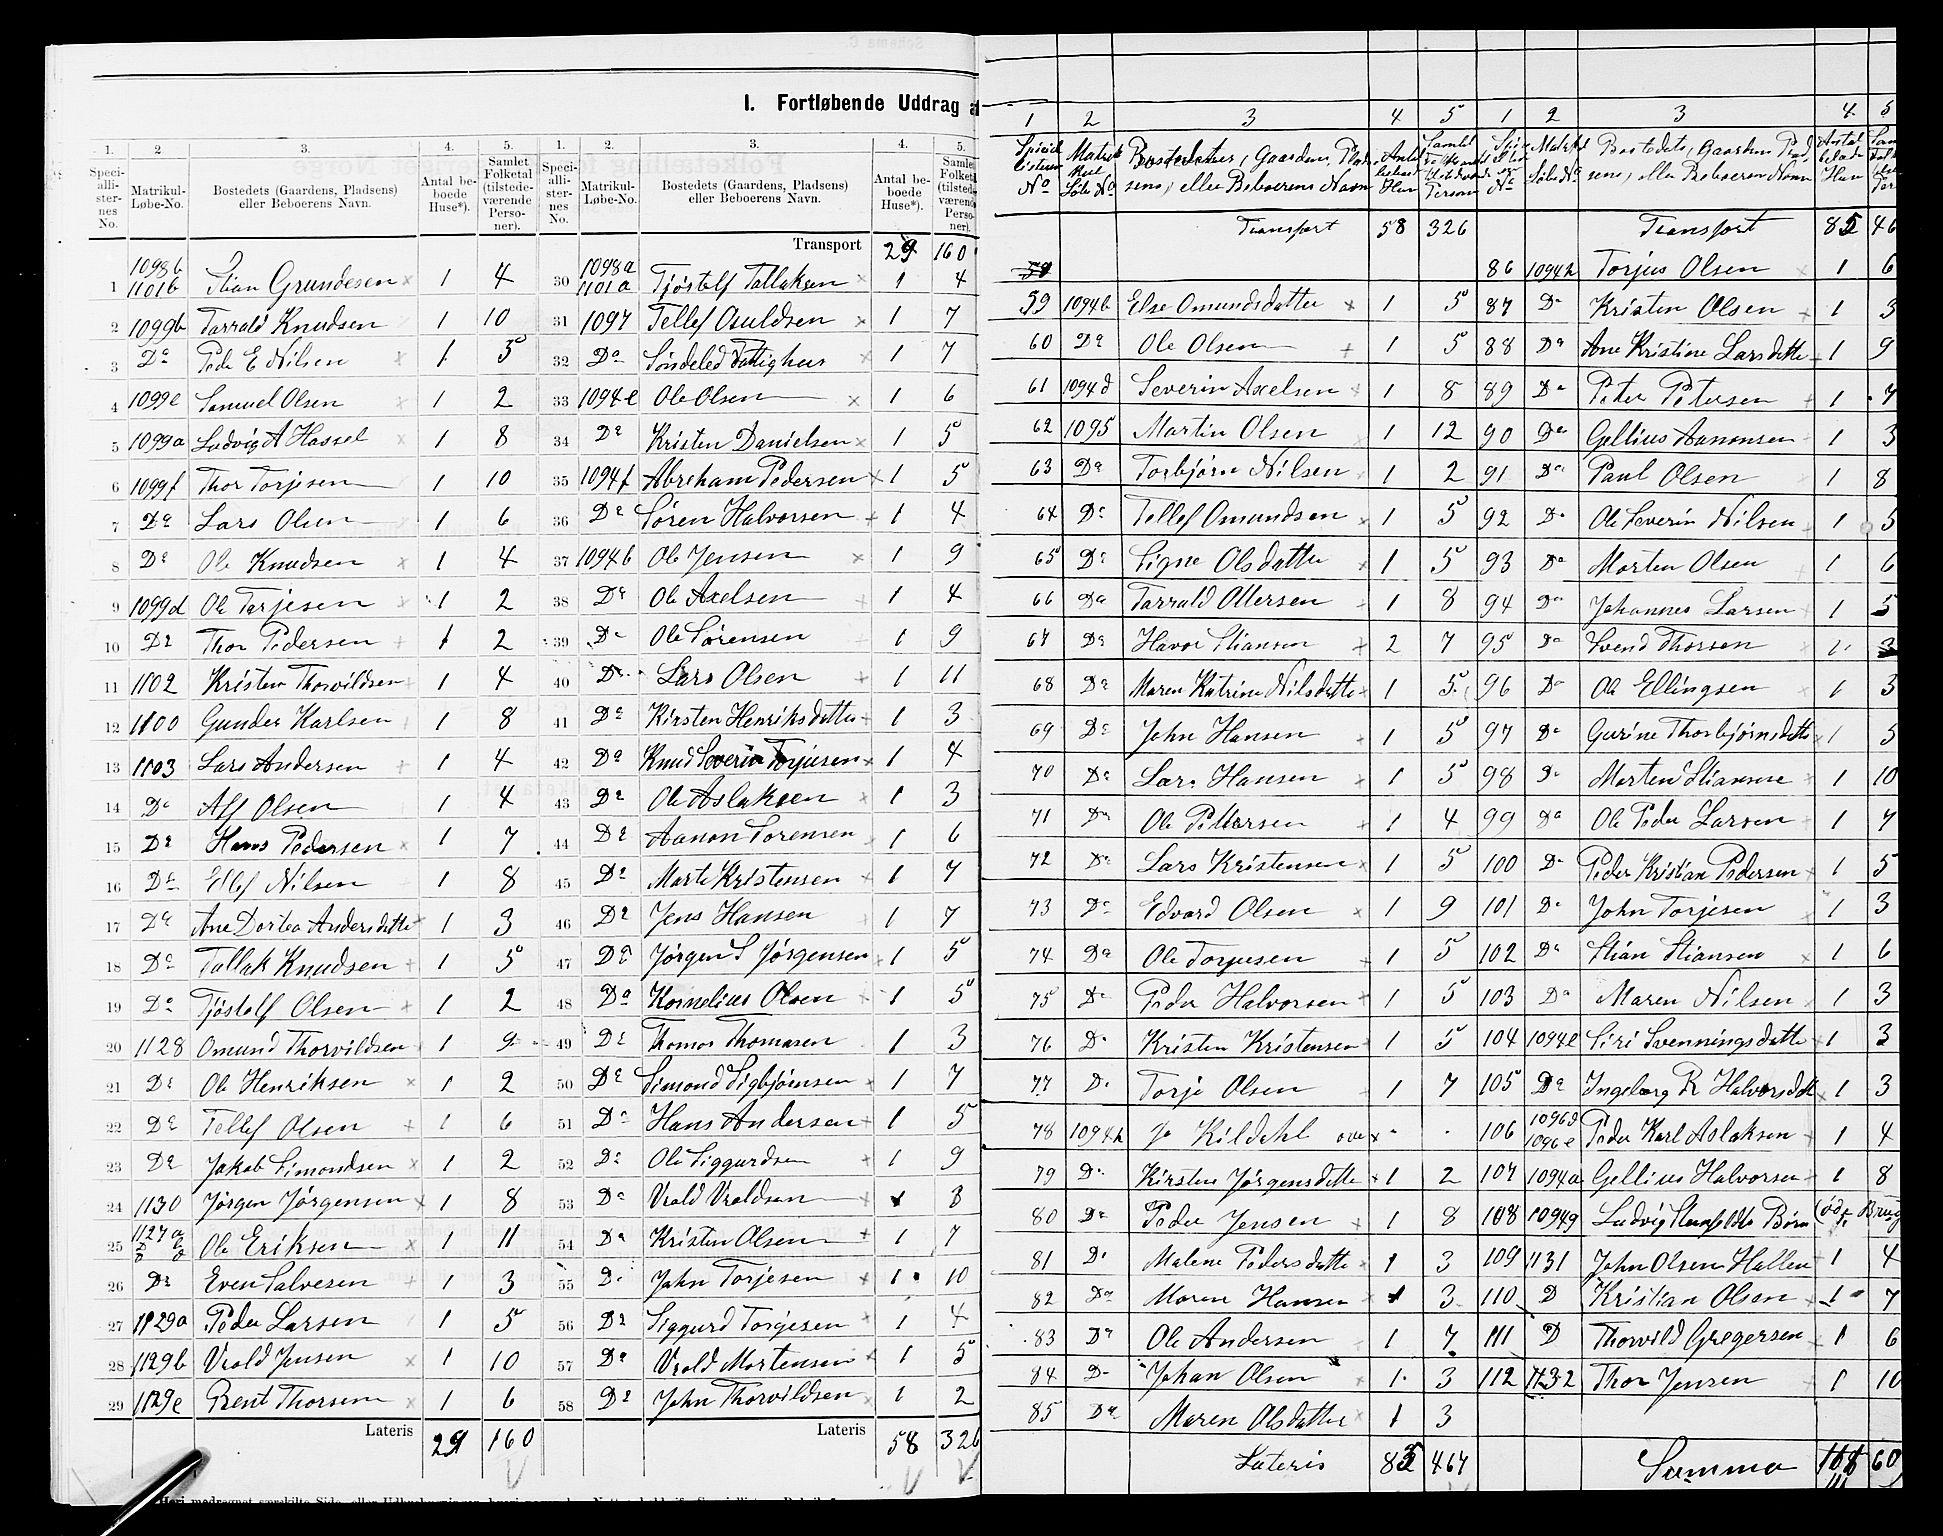 I. Fortløbende Uddrag a
1. 2 3. 4. 5. 1. 2. 3. 4. 5.
Speci-alli-ster-nes No. Matrikul-Løbe-No. Bostedets (Gaardens, Pladsens) eller Beboerens Navn. Antal be-boede Huse*). Samlet Folketal (tilstede-værende Perso-ner). Speci-alli-ster-nes No. Matrikul-Løbe-No. Bostedets (Gaardens, Pladsens) eller Beboerens Navn. Antal be-boede Huse*). Samlet Folketal (tilstede-værende Perso-ner).
Transport 29 160
1 1098b 1101b Stian Grundesen x 1 4 30 1098a 1101a Tjöstolf Tallaksen x 1 4
2 1099b Tarrald Knudsen 1 10 31 1097 Tellef Osuldsen x 1 7
3 Do Peder E Nilsen x 1 5 32 Do Söndeled Fattighus x 1 7
4 1099e Samuel Olsen x 1 2 33 1094e Ole Olsen x 1 6
5 1099a Ludvig A Hassel x 1 8 34 Do Kristen Danielsen x 1 5
6 1099f Thor Torjesen 1 10 35 1094f Abreham Pedersen x 1 5
7 Do Lars Olsen 1 6 36 Do Sören Halvorsen + 1 4
8 Do Ole Knudsen x 1 4 37 1094b Ole Jensen x 1 9
9 1099d Ole Torjesen x 1 2 38 Do Ole Axelsen 1 4
10 Do Thor Pedersen + 1 2 39 Do Ole Sörensen 1 9
11 1102 Kristen Thorvildsen + 1 4 40 Do Lars Olsen 1 11
12 1100 Gunder Karlsen 1 8 41 Do Kirsten Henriksdatter + 1 3
13 1103 Lars Andersen + 1 4 42 Do Knud Severin Torjusen x 1 4
14 Do Alf Olsen 1 4 43 Do Ole Aslaksen x 1 3
15 Do Hans Pedersen x 1 7 44 Do Aanon Sorensen 1 6
16 Do Ellef Nilsen 1 8 45 Do Marte Kristensen + 1 7
17 Do Ane Dortea Andersdatter 1 3 46 Do Jens Hansen 1 7
18 Do Tallak Knudsen + 1 5 47 Do Jörgen S Jörgensen x 1 5
19 Do Tjöstolf Olsen + 1 2 48 Do Kornelius Olsen 1 5
20 1128 Omund Thorvildsen 1 9 49 Do Thomas Thomasen 1 3
21 Do Ole Henriksen x 1 2 50 Do Simond Sigbjörnsen x 1 7
22 Do Tellef Olsen + 1 6 51 Do Hans Andersen + 1 5
23 Do Jakob Simondsen x 1 2 52 Do Ole Siggurdsen + 1 9
24 1130 Jörgen Jörgensen x 1 8 53 Do Vrald Vraldsen + 1 8
25 1127a Ole Eriksen x 1 11 54 Do Kristen Olsen + 1 7
26 Do Even Salvesen + 1 3 55 Do John Torjesen + 1 10
27 1129a Peder Larsen 1 5 56 Do Siggurd Torjesen x 1 4
28 1129b Vrald Jensen x 1 10 57 Do Vrald Mortensen 1 5
29 1129e Bent Thorsen x 1 6 58 Do John Thorvildsen x 1 2
Lateris 29 160 Lateris 58 326
1 2 3 4 5 1 2 3 4 5
Transport 58 326 Transport 85 46
86 1094h Torjus Olsen x 1 6
59 1094b Else Omundsdatter x 1 5 87 Do Kristen Olsen + 1 3
60 Do Ole Olsen + 1 5 88 Do Ane Kristine Larsdatter 1 9
61 1094d Severin Axelsen x 1 8 89 Do Peter Petersen + 1 7
62 1095 Martin Olsen 1 12 90 Do Gellius Aanonsen 1 3
63 Do Torbjörn Nilsen 1 2 91 Do Paul Olsen 1 8
64 Do Tellef Omundsen x 1 5 92 Do Ole Severin Nilsen 1 5
65 Do Signe Olsdatter x 1 5 93 Do Morten Olsen 1 6
66 Do Tarrald Ollersen 1 8 94 Do Johannes Larsen + 1 5
67 Do Havor Stiansen + 2 7 95 Do Svend Thorsen 1 3
68 Do Maren Katrine Nilsdatter x 1 5 96 Do Ole Ellingsen x 1 3
69 Do John Hansen 1 5 97 Do Gurine Thorbjörnsdatter x 1 5
70 Do Lars Hansen x 1 5 98 Do Morten Stiansen x 1 10
71 Do Ole Pettersen + 1 4 99 Do Ole Peder Larsen 1 7
72 Do Lars Kristensen x 1 5 100 Do Peder Kristian Pedersen + 1 5
73 Do Edvard Olsen x 1 9 101 Do John Torjesen 1 3
74 Do Ole Torjusen + 1 5 102 Do Stian Stiansen x 1 6
75 Do Peder Halvorsen + 1 5 103 Do Maren Nilsen 1 3
76 Do Kristen Kristensen 1 5 104 1094e Siri Svenningsdatter + 1 3
77 Do Torje Olsen 1 7 105 Do Ingeborg R Halvorsdatt x 1 3
78 1094h Kildahl 106 1096d 1096e Peder Karl Aslaksen 1 4
79 Do Kirsten Jörgensdatter + 1 2 107 1094a Gellius Halvorsen 1 8
80 Do Peder Jensen + 1 8 108 1094g Ludvig Börn
81 Do Malene Pedersdatter 1 3 109 1131 John Olsen Hallen 1 4
82 Do Maren Hansen x 1 3 110 D Kristian Olsen + 1 7
83 Do Ole Andersen 1 7 111 D Thorvild Gregersen x 1 6
84 Do Johan Olsen 1 3 112 1132 Thor Jensen 1 10
85 Do Maren Olsdatter x 1 3
Lateris 85 467 Summa 60